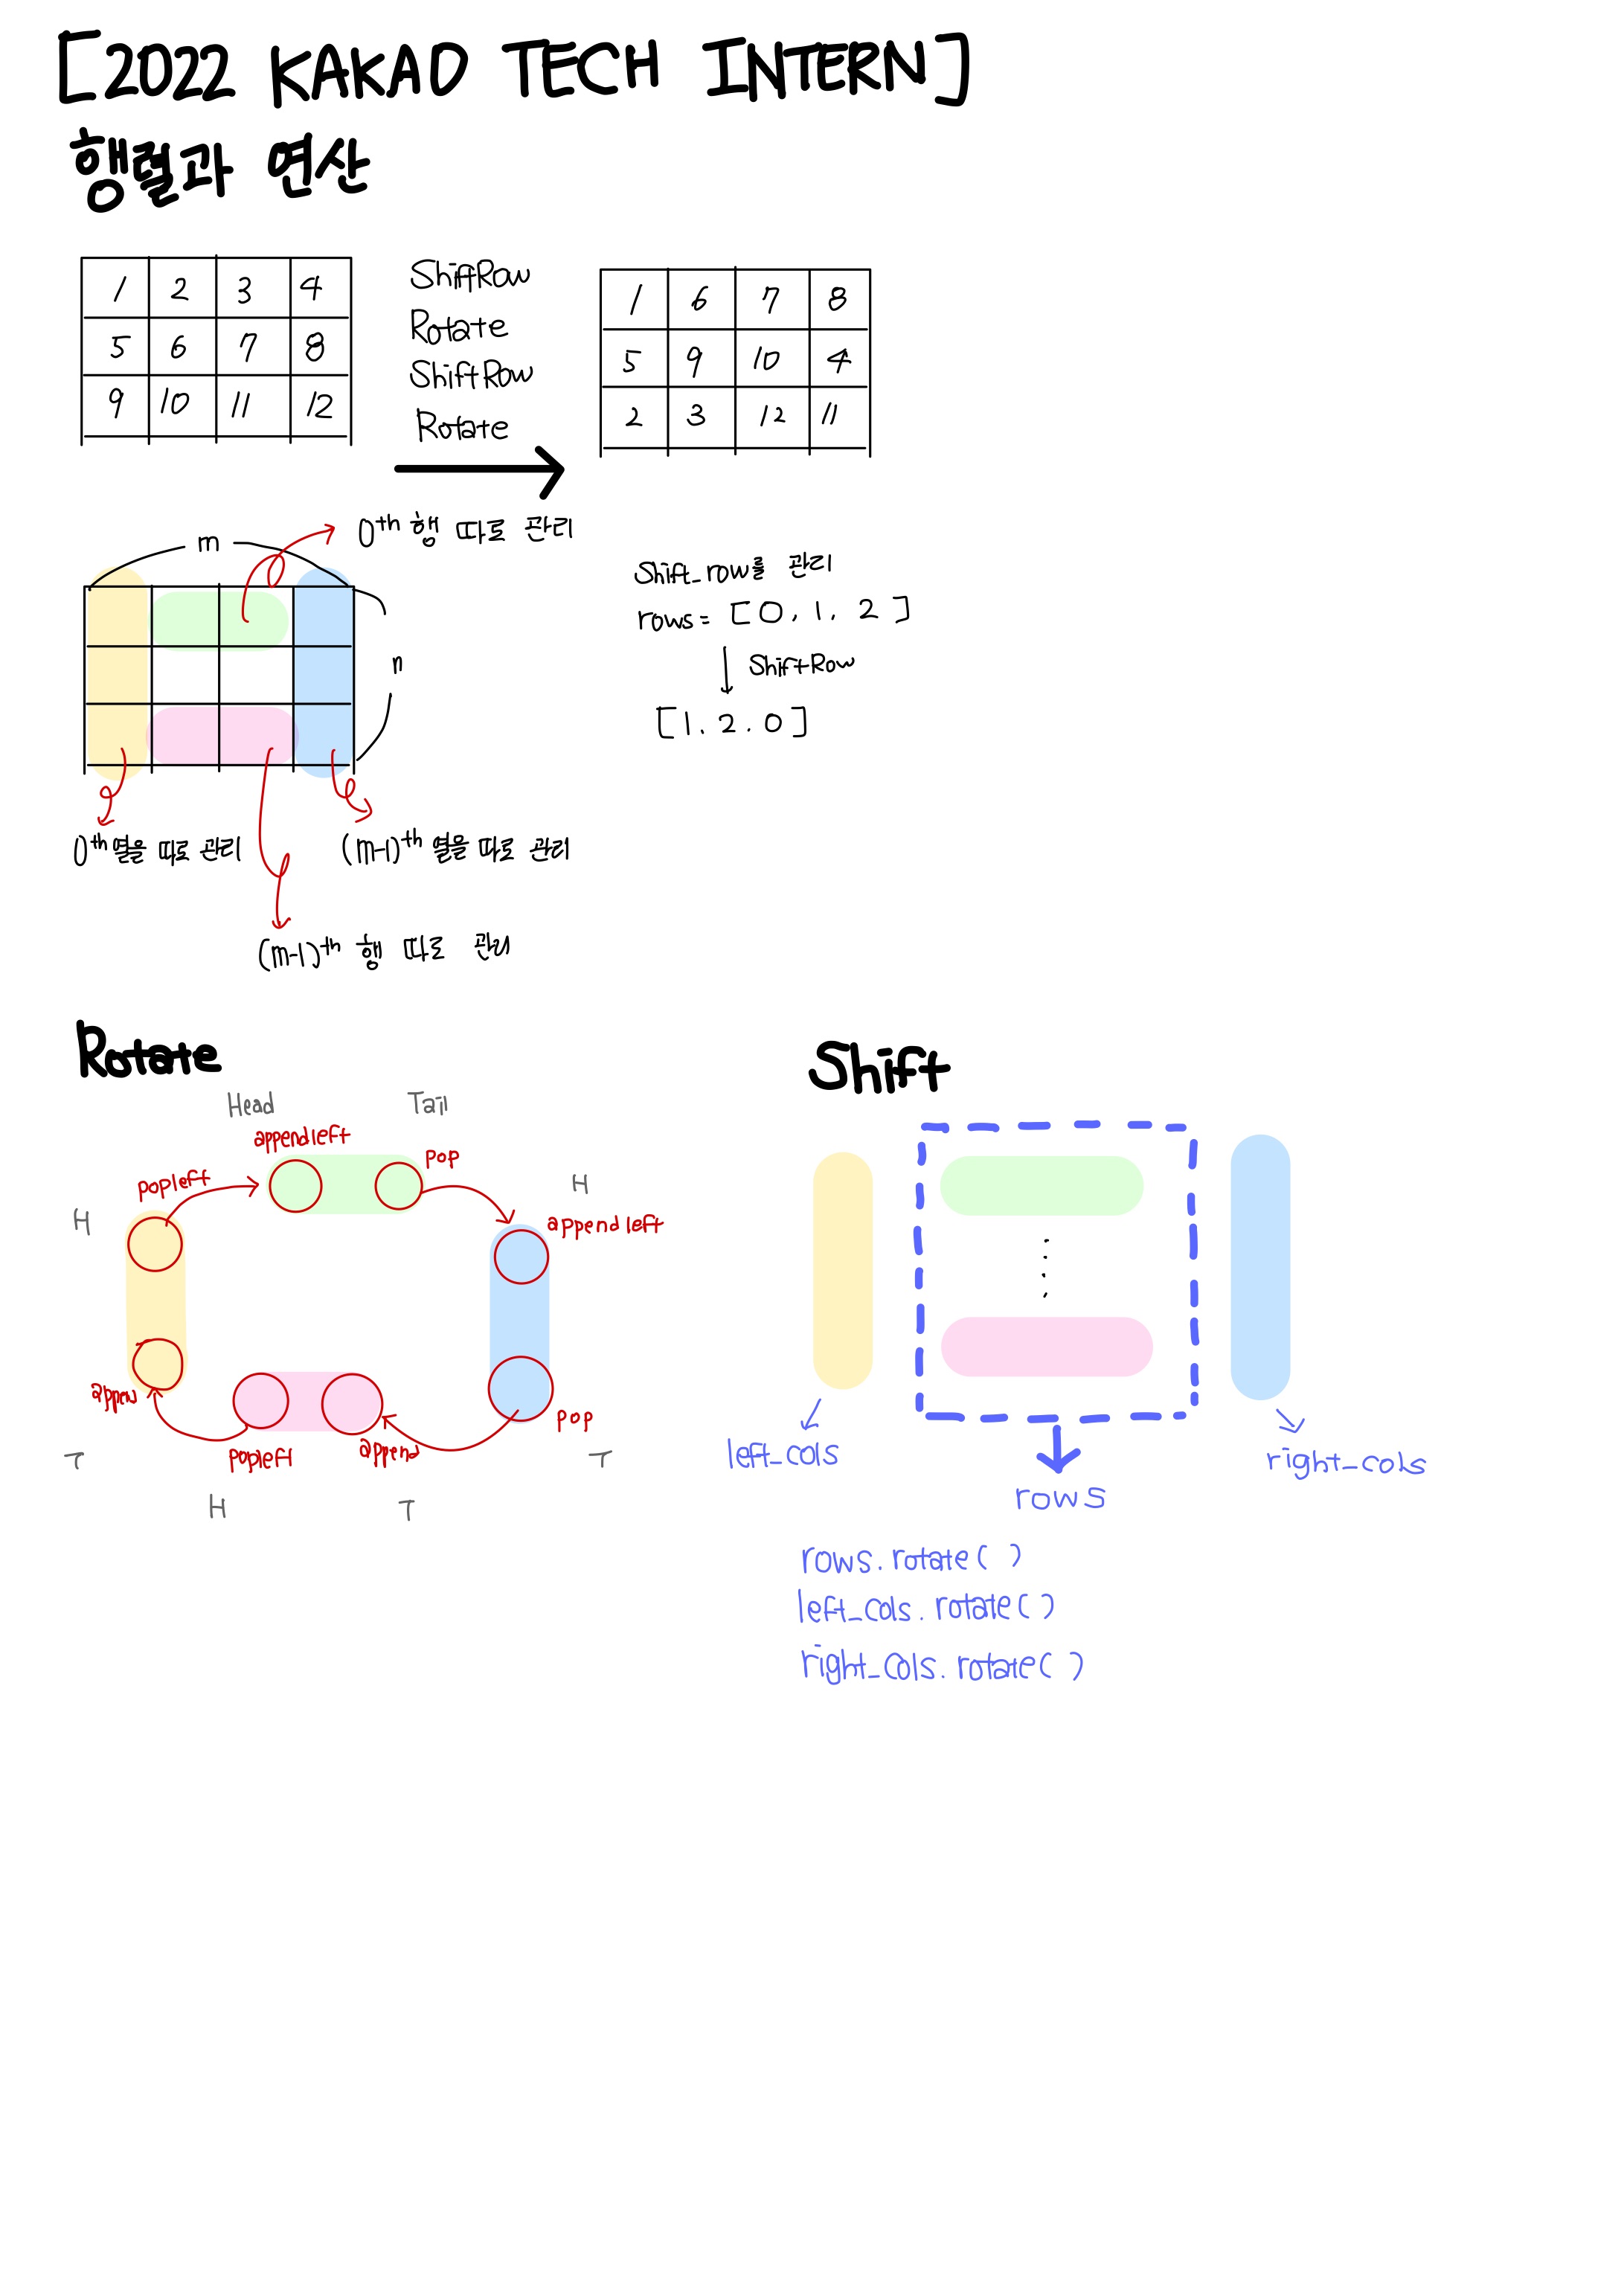 [2022 KAKAO TECH INTERN]
행렬과 연산
1 2 3 4
5 6 7 8
9 10 11 12
ShiftRow
Rotate
ShiftRow
Rotate
1 6 7 8
5 9 10 4
2 3 12 11
m
0th 행 따로 관리
n
0th 열을 따로 관리
(m-1)th 열을 따로 관리
(m-1)th 행 따로 관리
Shift_row를 관리
rows = [0, 1, 2]
ShiftRow
[1. 2. 0]
Rotate
Head
Tail
appendleft
pop
popleft
H
H
appendleft
appen
popleft
append
pop
T
H
T
T
Shift
left_cols
rows
right_cols
rows.rotate( )
left_cols.rotate( )
right_cols.rotate( )